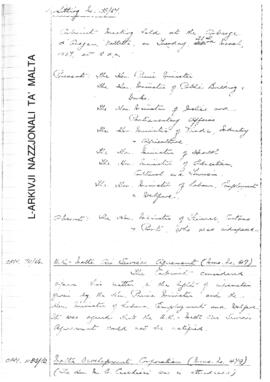 L-ARKIVJI NAZZJONALI TA' MALTA
Sitting No.
Cabinet Meeting held at the Auberge
d'Aragon Valletta, on Tuesday
Present: The Hon. Prime Minister
The Hon. Minister of Public Building &
Works.
The Hon. Minister of Justice and
Parliamentary Affairs
The Hon. Minister of Trade, Industry
& Agriculture
The Hon. Minister of Health
The Hon. Minister of Education,
Culture and Tourism.
The Hon. Minister of Labour, Employment
& Welfare.
Absent: The Hon. Minister of Finance, Customs
& Ports who was indisposed.
U.K.-Malta Air Services Agreement
The Cabinet considered
this matter in the light of information
given by the Hon. Prime Minister and the
Hon. Minister of Labour, Employment and Welfare.
It was agreed that the U.K.-Malta Air Services
Agreement could not be ratified.
Malta Development Corporation
(The Hon. was in attendance)